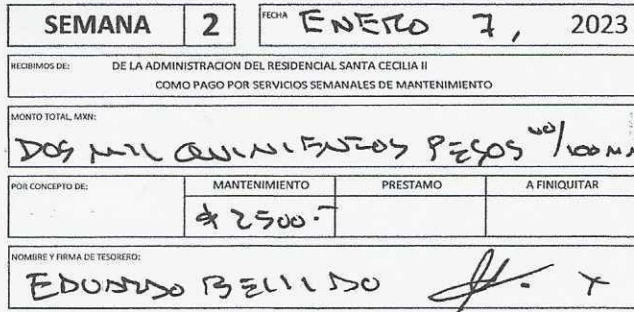 SEMANA 2 FECHA ENERO 7, 2023
RECIBIMOS DE: DE LA ADMINISTRACION DEL RESIDENCIAL SANTA CECILIA II
COMO PAGO POR SERVICIOS SEMANALES DE MANTENIMIENTO
MONTO TOTAL, MXN:
DOS MIL QUINIENTOS PESOS 00/100 M.
POR CONCEPTO DE: MANTENIMIENTO PRESTAMO A FINIQUITAR
$ 2500.-
NOMBRE Y FIRMA DE TESORERO:
EDUARDO BELLIDO